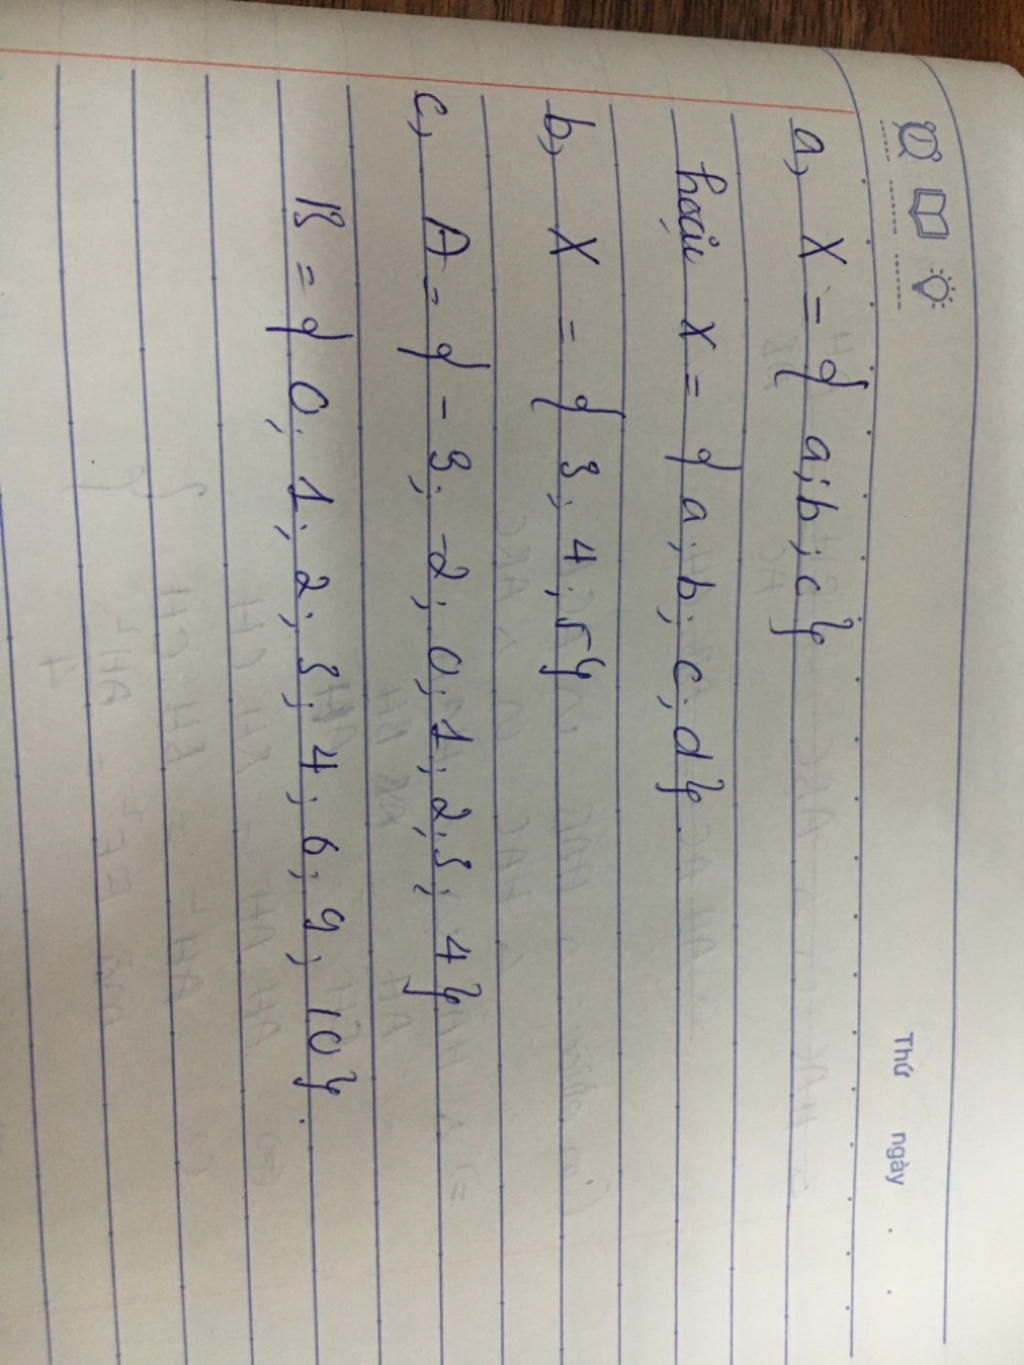 Thứ ngày
a, X = { a; b; c}
hoặc X = { a; b; c; d}
b, X = { 3; 4; 5}
c, A = { -3; -2; 0; 1; 2; 3; 4}
B = { 0; 1; 2; 3; 4; 6; 9; 10}.